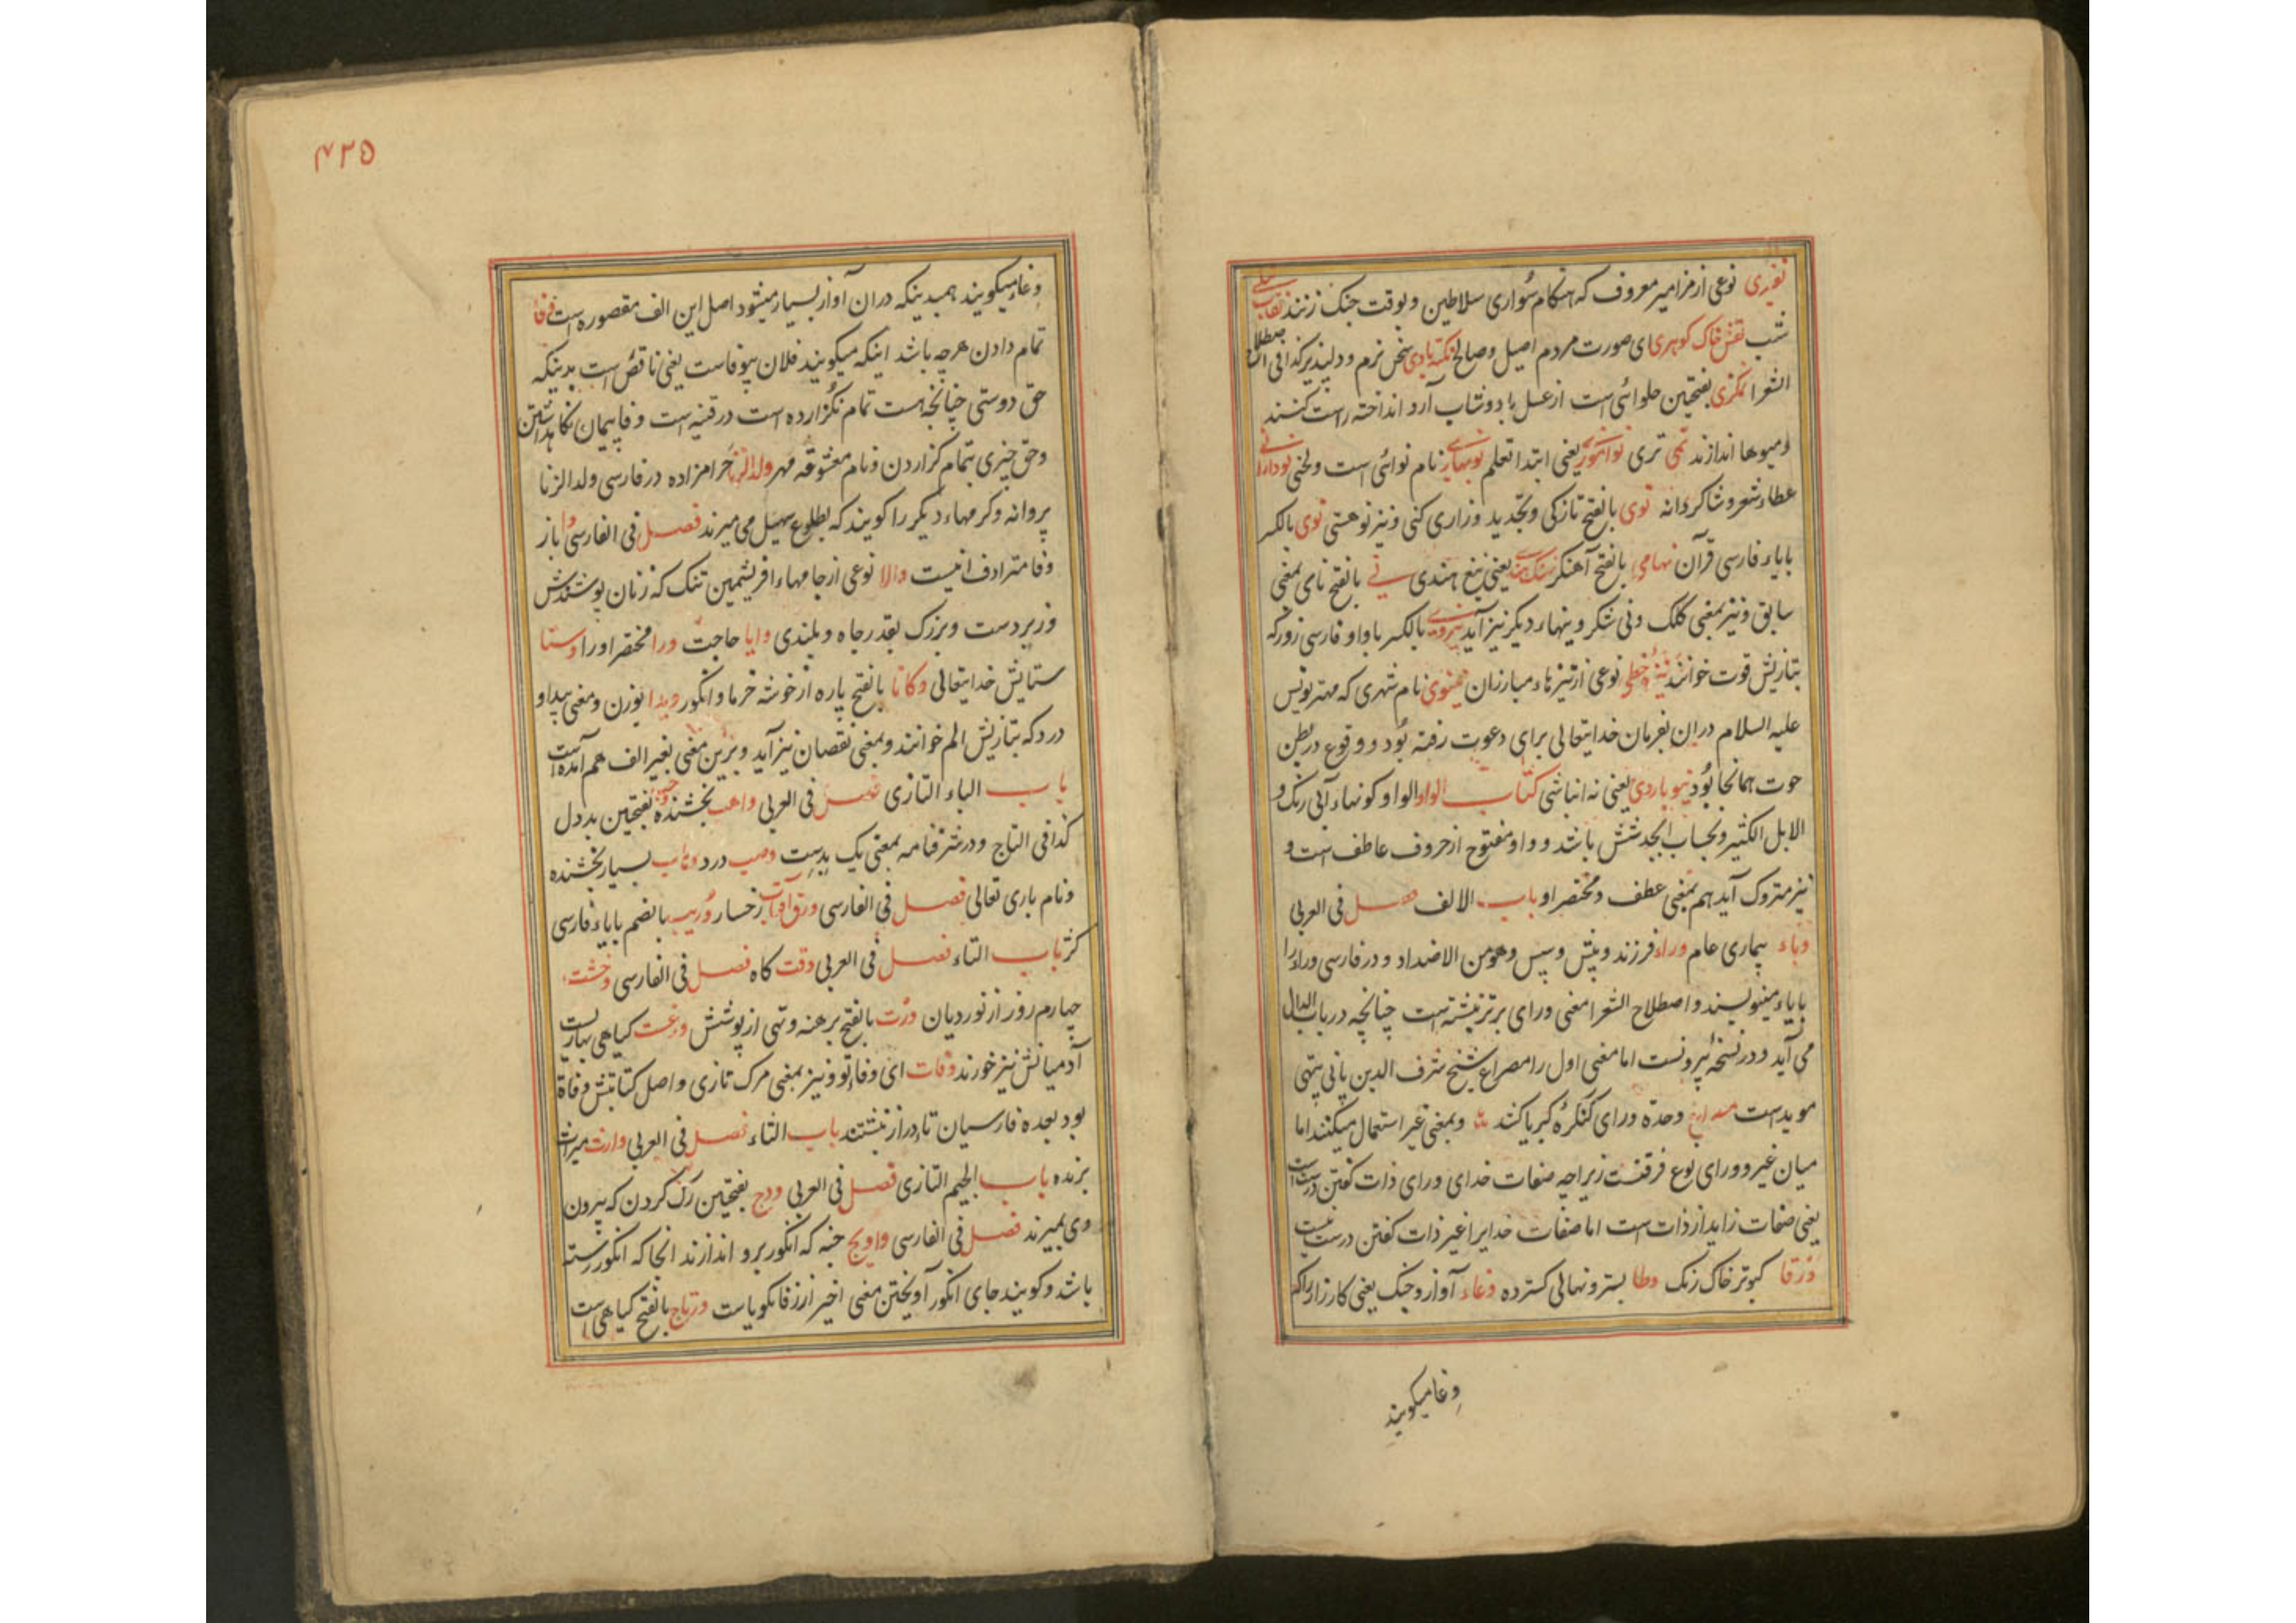 نفیری نوعی از مزامیر معروف که هنکام سواری سلاطین و بوقت جنک زنند نقاب
شب نقش خاک کوهری ای صورت مردم اصیل و صالح نکته بادی سخن نرم و دلپذیر کذا فی اصطلاح
الشعرا بفتحتین حلوائی است از عسل یا دوشاب آرد انداخته راست کنند
و میوها اندازند نمی تری نوآموزی یعنی ابتدا تعلم نوبهاری نام نوائی است و لحنی نودارانی
عطاء شعر و شاکردانه نوی بالفتح تازکی و تجدید و زاری کنی و نیز نو هستی نوی بالکسر
بایاء فارسی قرآن نهامی بالفتح آهنکر یعنی تیغ هندی نی بالفتح نای بمعنی
سابق و نیز بمعنی کلک و نی شکر و نیهاء دیکر نیز آید نیروی بالکسر با واو فارسی زور که
بتازیش قوت خوانند نیزه خطی نوعی از نیزهاء مبارزان نینوی نام شهری که مهتر یونس
علیه السلام دران بفرمان خدایتعالی برای دعوت رفته بود و وقوع در بطن
حوت همانجا بود نیوباردی یعنی نه انباشی کتاب الواو الواو کونهاء آبی رنک و
الابل الکثیر و بحساب ابجد شش باشد و واو مفتوح از حروف عاطف است و
نیز متروک آید هم بمعنی عطف و مختصر او باب الالف فصل فی العربی
وباء بیماری عام وراء فرزند و پیش و سپس و هو من الاضداد و در فارسی وراء را
بایاء مینویسند و اصطلاح الشعرا معنی ورای برتر نبشته است چنانچه در باب الدال
می آید و در نسخه بیرونست اما معنی اول را مصراع شیخ شرف الدین پانی پتی
مویدست وحدة ورای کنکرهٔ کبریا کند و بمعنی غیر استعمال میکنند اما
میان غیر و ورای نوع فرقست زیراچه صفات خدای ورای ذات کفتن درست است
یعنی صفات زاید از ذات است اما صفات خدایرا غیر ذات کفتن درست نیست
ورقا کبوتر خاک رنک وطا بستر و نهالی کسترده وغاء آواز و جنک یعنی کارزار را که
وغا میکویند
۴۲۵
وغا میکویند همبدینکه دران آواز بسیار میشود اصل این الف مقصوره است وفا
تمام دادن هرچه باشد اینکه میکویند فلان بیوفاست یعنی ناقص است بدینکه
حق دوستی چنانچه هست تمام نکزارده است در قنیه است وفا پیمان نکاهداشتن
و حق چیزی بتمام کزاردن و نام معشوقه مهر ولد الزنا حرامزاده در فارسی ولد الزنا
پروانه و کرمهاء دیکر را کویند که بطلوع سهیل می میرند فصل فی الفارسی وا باز
وفا مترادف انیست والا نوعی از جامهاء افریشمین تنک که زنان پوشندش
و زبردست و بزرک بقدر جاه و بلندی وایا حاجت ورا مختصر اورا وستا
ستایش خدایتعالی وکانا بالفتح پاره از خوشه خرما و انکور ویدا بوزن و معنی پیدا و
درد که بتازیش الم خوانند و بمعنی نقصان نیز آید و برین معنی بغیر الف هم آمده است
باب الباء التازی فصل فی العربی واهب بخشنده بفتحتین بد دل
کذا فی التاج و در شرفنامه بمعنی یک بدست وصب درد وهاب بسیار بخشنده
و نام باری تعالی فصل فی الفارسی ورق آفتاب رخسار وریب بالضم بایاء فارسی
کژ باب التاء فصل فی العربی وقت کاه فصل فی الفارسی وخشت
چهارم روز از نوردیان ورت بالفتح برهنه و تهی از پوشش ورغست کیاهی بهاریست
آدمیانش نیز خورند وفات ای وفاء تو و نیز بمعنی مرک تازی و اصل کتابتش وفاة
بود بعده فارسیان تا دراز نبشتند باب الثاء فصل فی العربی وارث میراث
برنده باب الجیم التازی فصل فی العربی ودج بفتحتین رک کردن که بیرون
وی بمیرند فصل فی الفارسی واویج که انکور برو اندازند انجا که انکور رسته
باشد و کویند جای انکور آویختن معنی اخیر از زفانکویاست ورتاج بالفتح کیاهی است